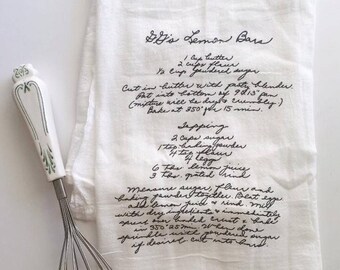 GG's Lemon Bars
1 cup butter
2 cups flour
1/2 cup powdered sugar
Cut in butter with pastry blender.
Pat into bottom of 9x13" pan
(mixture will be dry & crumbly)
Bake at 350° for 15 min.
Topping
2 cups sugar
1 tsp baking powder
4 tbsp flour
4 eggs
6 tbs. lemon juice
3 tbs. grated rind
Measure sugar, flour and
baking powder together. Beat eggs
add lemon juice & rind. Mix
with dry ingredients & immediately
pour on baked crust & bake
in 350° 25 min. When done
sprinkle with powdered sugar
if desired cut into bars.